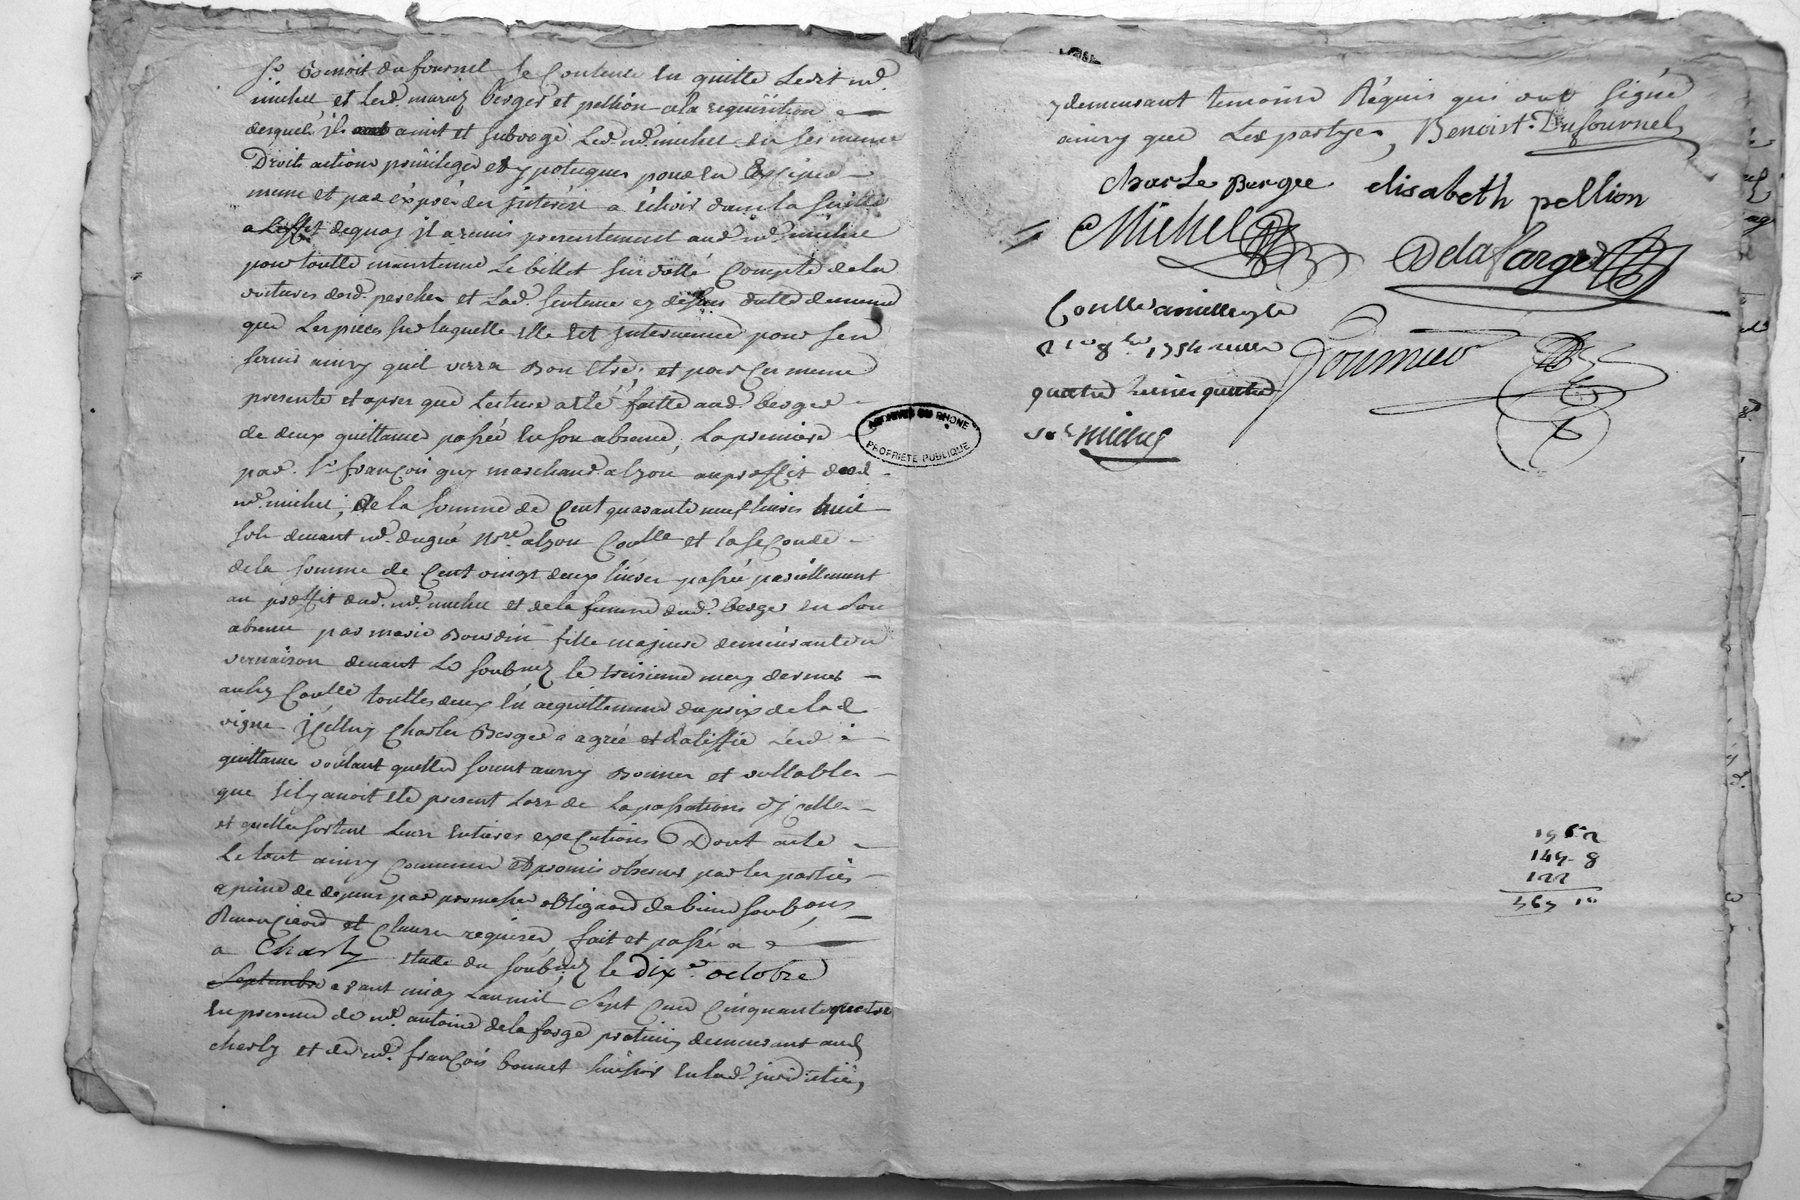 Sr. Benoit du fournel se Contente en quitte Ledit md.
michel et Lesd. mariez berger et pellion a la requisition
desquels il a mis et subrogé Led. md. michel en ses mesmes
Droits actions privileges et ypoteques pour en
meme et par exprés des interêts a échoir dans la suitte
a L'effet dequoy il a remis presentement aud. md. michel
pour toutte maintenue Le billet sur datté Compte de la
voitures dud. perchet et Lad. sentence cy dessus datté de meme
que Les pieces sur laquelle elle est intervenue pour s'en
servir ainsy quil verra Bon Etre, et par Ces memes
presente et apres que Lecture a eté faitte aud. berger
de deux quittances passée en son absence, La premiere
par Sr. françois guy marchand a lyon au proffit dud.
md. michel, de la somme de Cent quarante neuf livres huit
sols devant md. dugué Nre. a lyon Coulle et la seConde
de la somme de Cent vingt deux livres passée pareillement
au proffit dud. md. michel et de la femme dud. berger en son
absence par marie Bourdin fille majeure demeurante a
vernaison devant Le soubnez le troisieme may dernier
aussy Coulle touttes deux en acquittement du prix de la d.
vigne iCelluy Charles Berger a agréé et Ratiffié Lesd.
quittances voulant quelles soient aussy Bonnes et vallables
que s'il y avoit eté present Lors de La passations d'jcelles
et quelles sortent Leurs entieres exeCutions Dont acte
Le tout ainsy Convenu et promis observer par les parties
a peine de depens par promesses obligaõnd de biens soubõns
RenonCiaõnd et Clauses requises, fait et passé a
a Charly etude du soubnez le dixe. octobre
Septembre avant midy L'an mil Sept Cent Cinquante quatre
en presence de md. antoine de la farge praticien demeurant aud.
charly et de md. françois bonnet huissier en lad. juridiction
y demeurant temoins Requis qui ont signé
ainsy que Les partyes, Benoist. Dufournel
charLe Bergee elisabeth pellion
Michel Delafarge
Coulle a milleryle
8bre 1754
quatre livres quatre Fournier
sols michel
ARCHIVES DU RHONE
PROPRIETE PUBLIQUE
149- 8
122